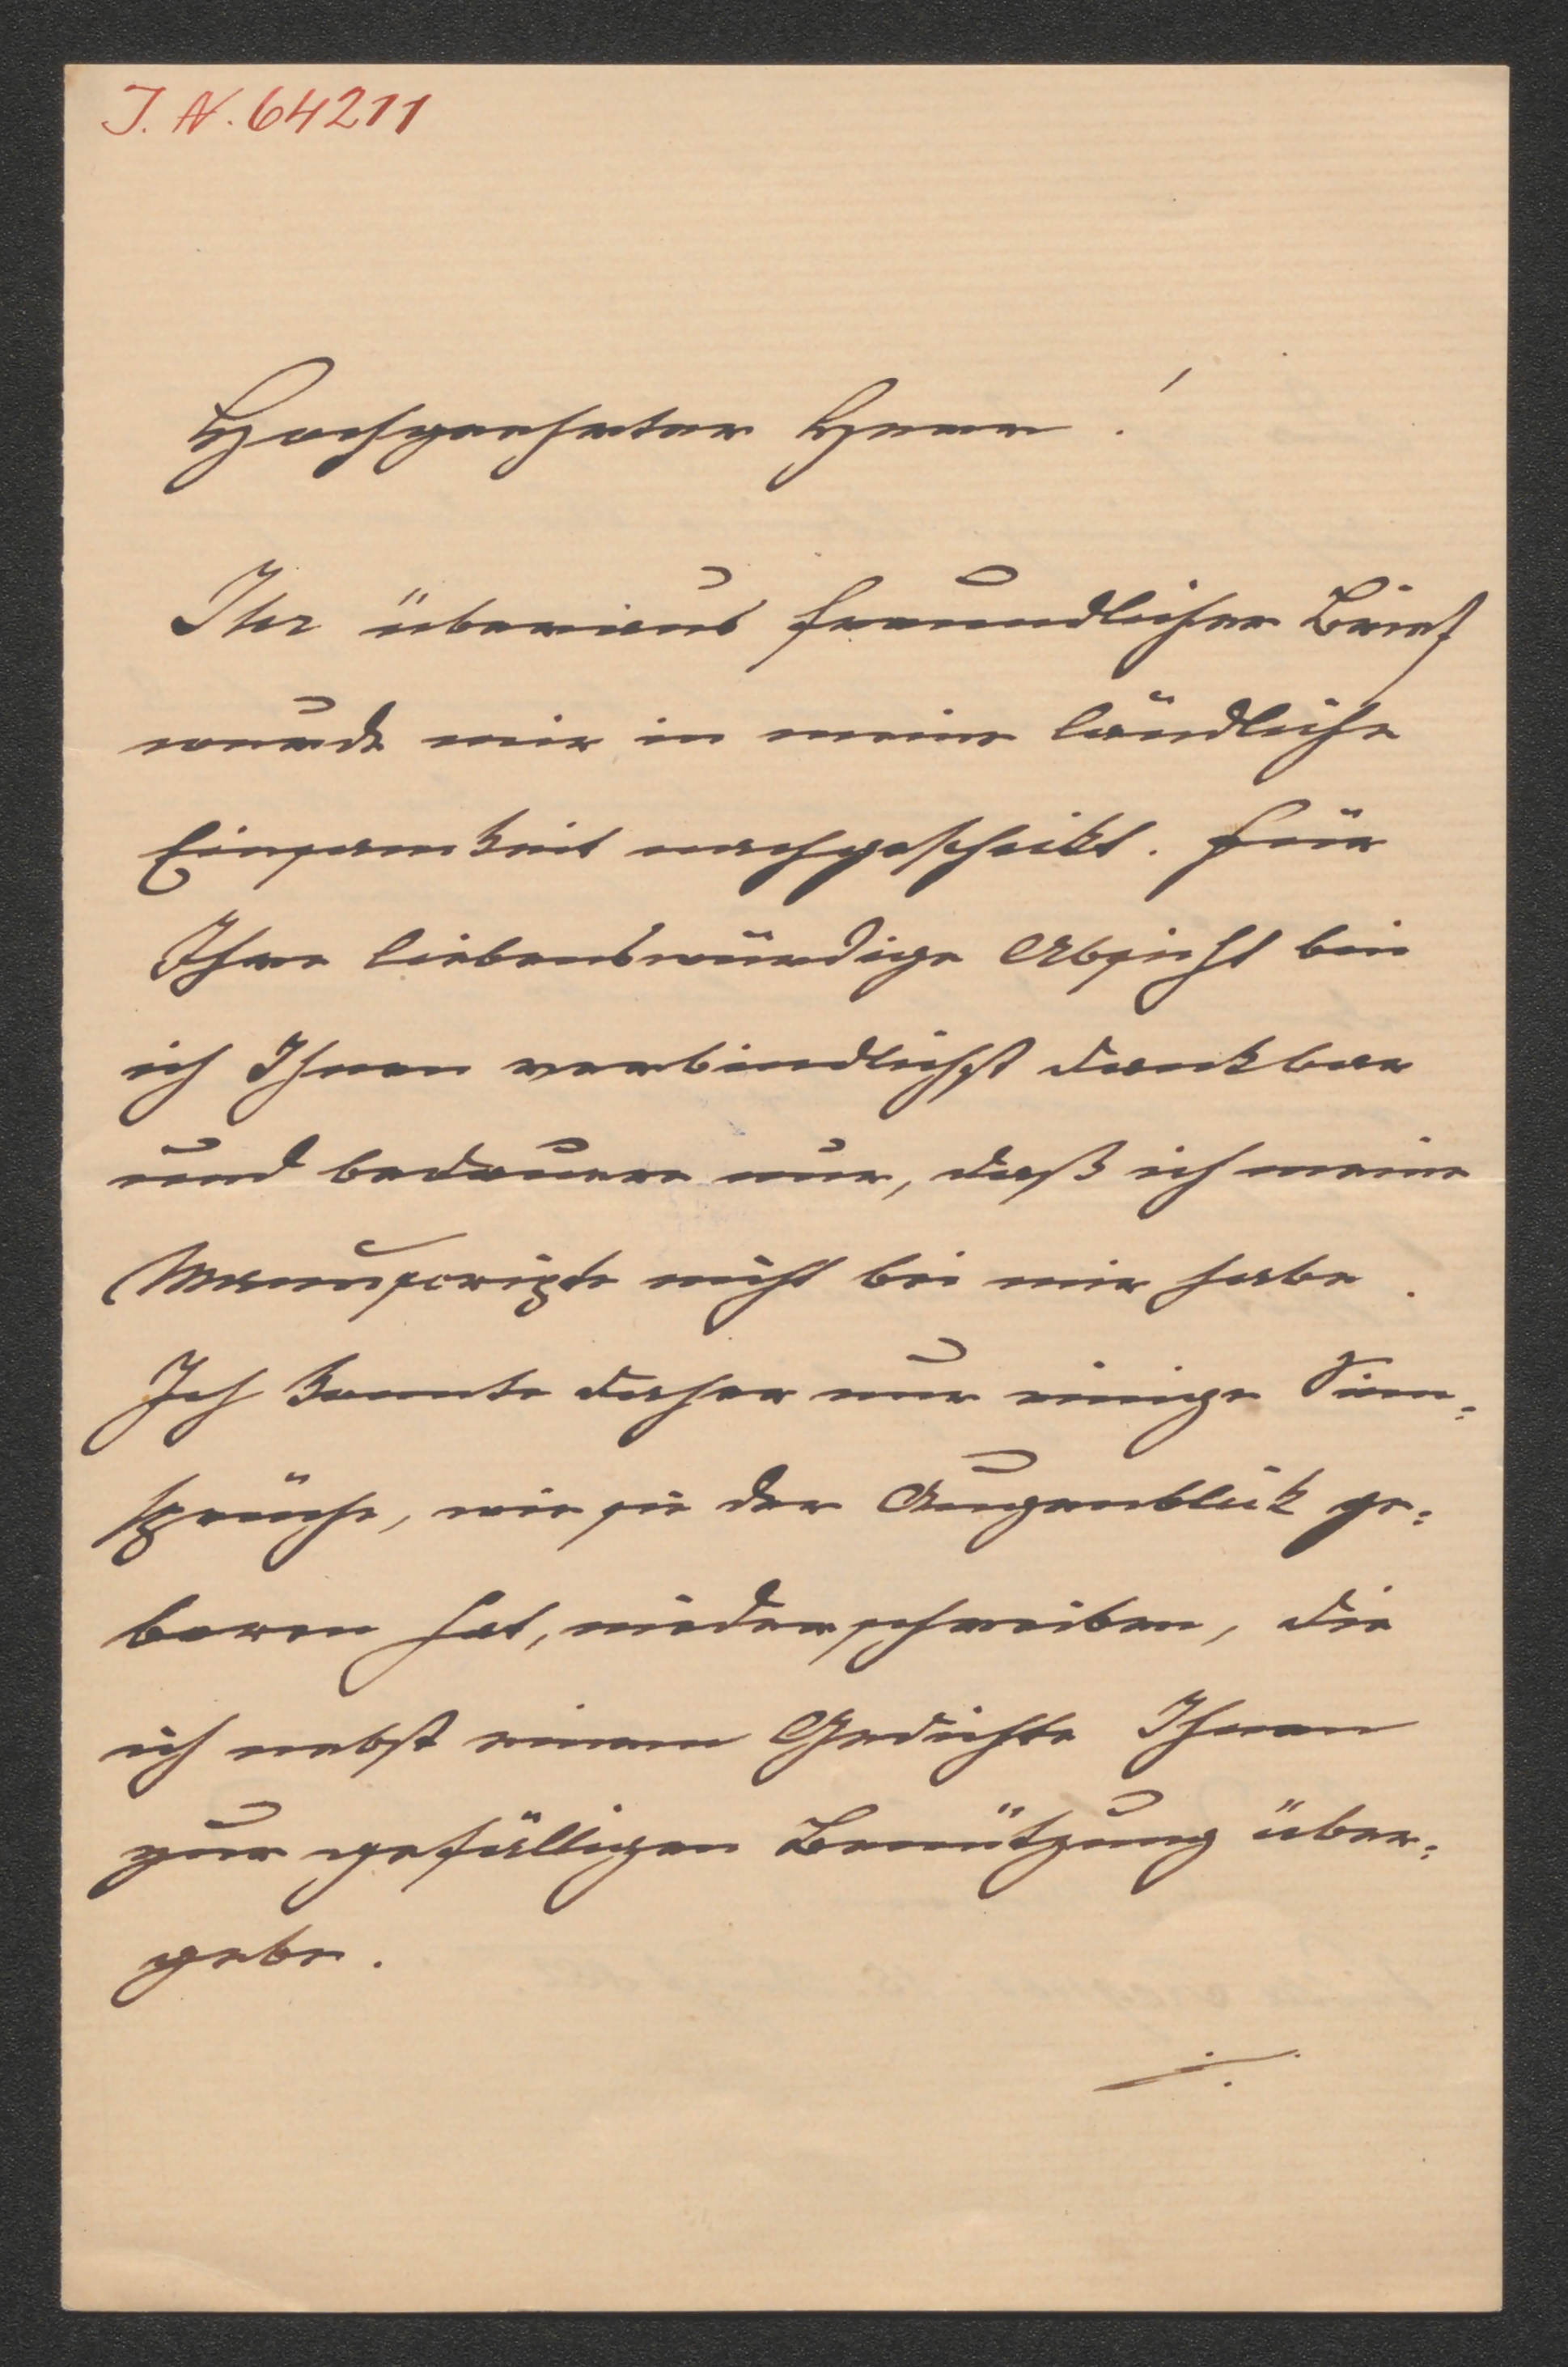 J. N. 64211
Hochgeehrter Herr!
Ihr überaus freundlicher Brief
wurde mir in meine ländliche
Einsamkeit nachgeschickt. Für
Ihre liebenswürdige Absicht bin
ich Ihnen verbindlichst dankbar
und bedauere nur, daß ich meine
Manuscripte nicht bei mir habe.
Ich konnte daher nur einige Sinn-
sprüche, wie sie der Augenblick ge-
boren hat, niederschreiben, die
ich nebst einem Gedichte Ihnen
zur gefälligen Benützung über-
gebe.
./.